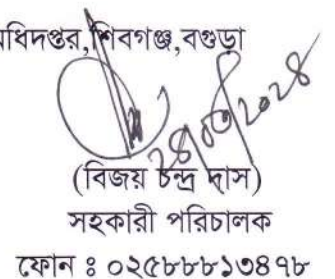 ধিদপ্তর,শিবগঞ্জ,বগুড়া
(বিজয় চন্দ্র দাস)
সহকারী পরিচালক
ফোন ঃ ০২৫৮৮৮১৩৪৭৮